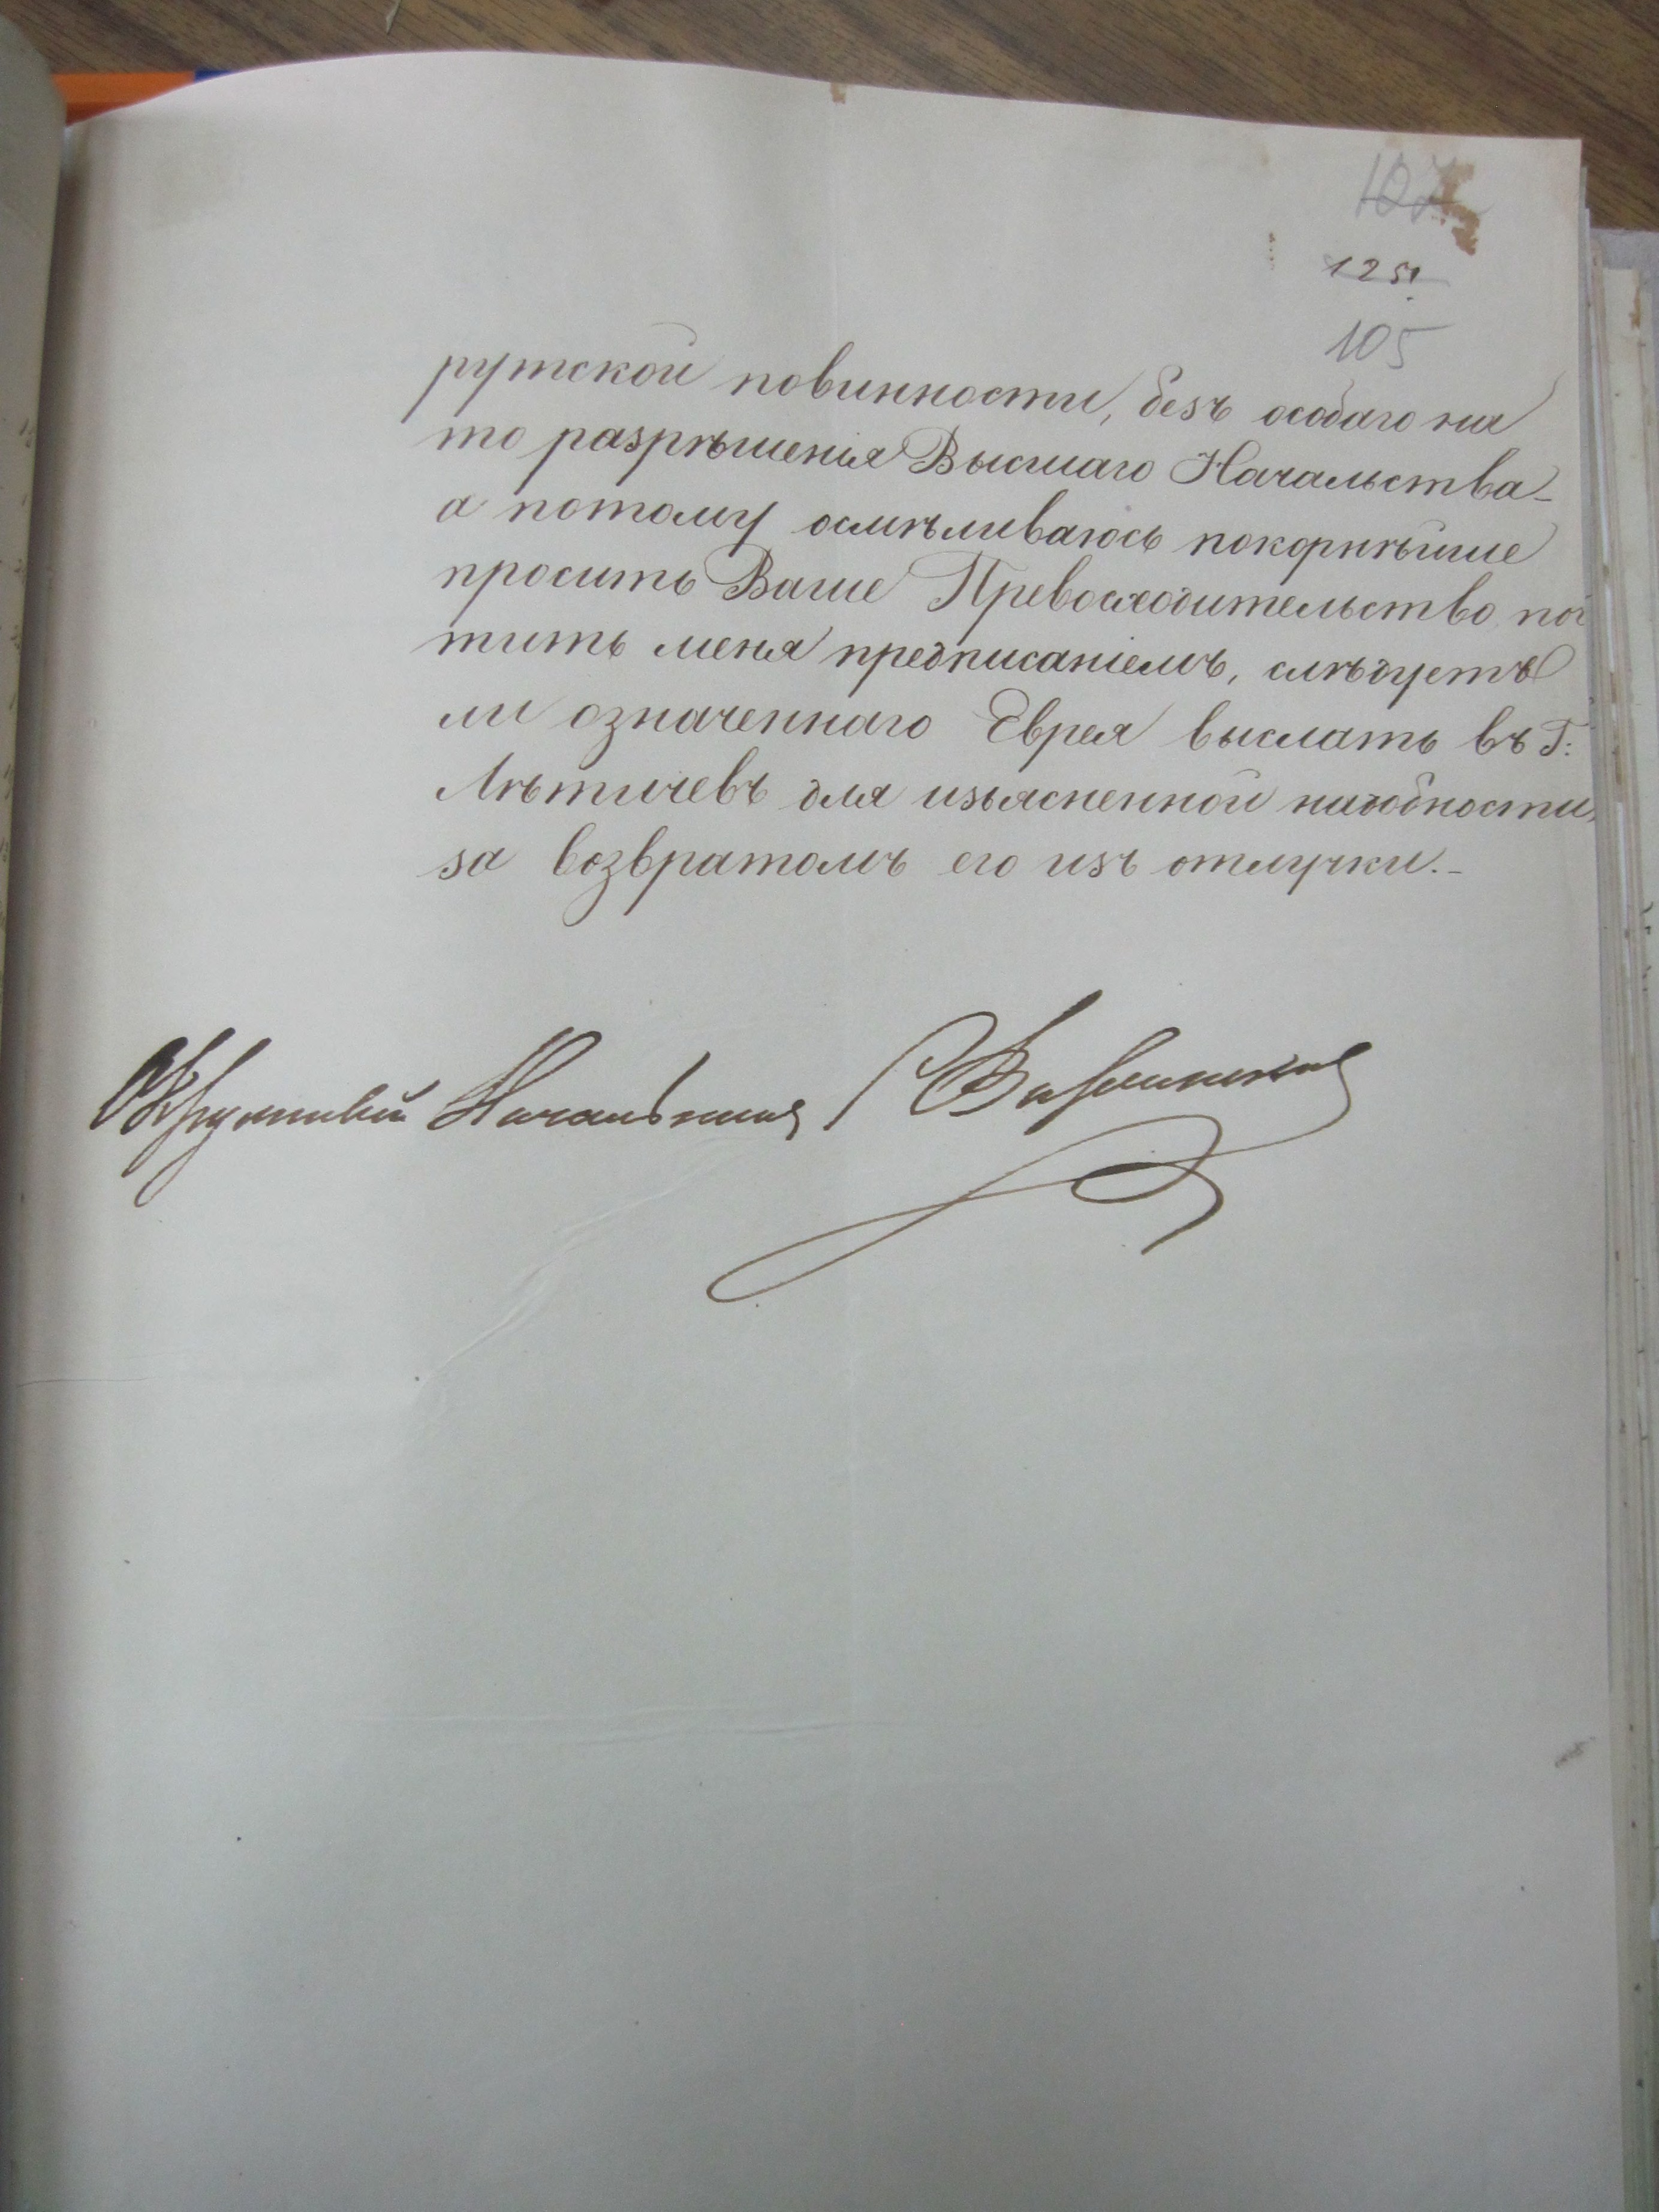 107
125
105
рутской повинности, безъ особаго на
то разрѣшенія Высшаго Начальства_
а потому осмѣливаюсь покорнѣйше
просить Ваше Превосходительство поч
тить меня предписаніемъ, слѣдуетъ
ли означеннаго Еврея выслать въ Г:
Лѣтичевъ для изъясненной надобности,
за возвратомъ его изъ отлучки._
Окружный Начальникъ